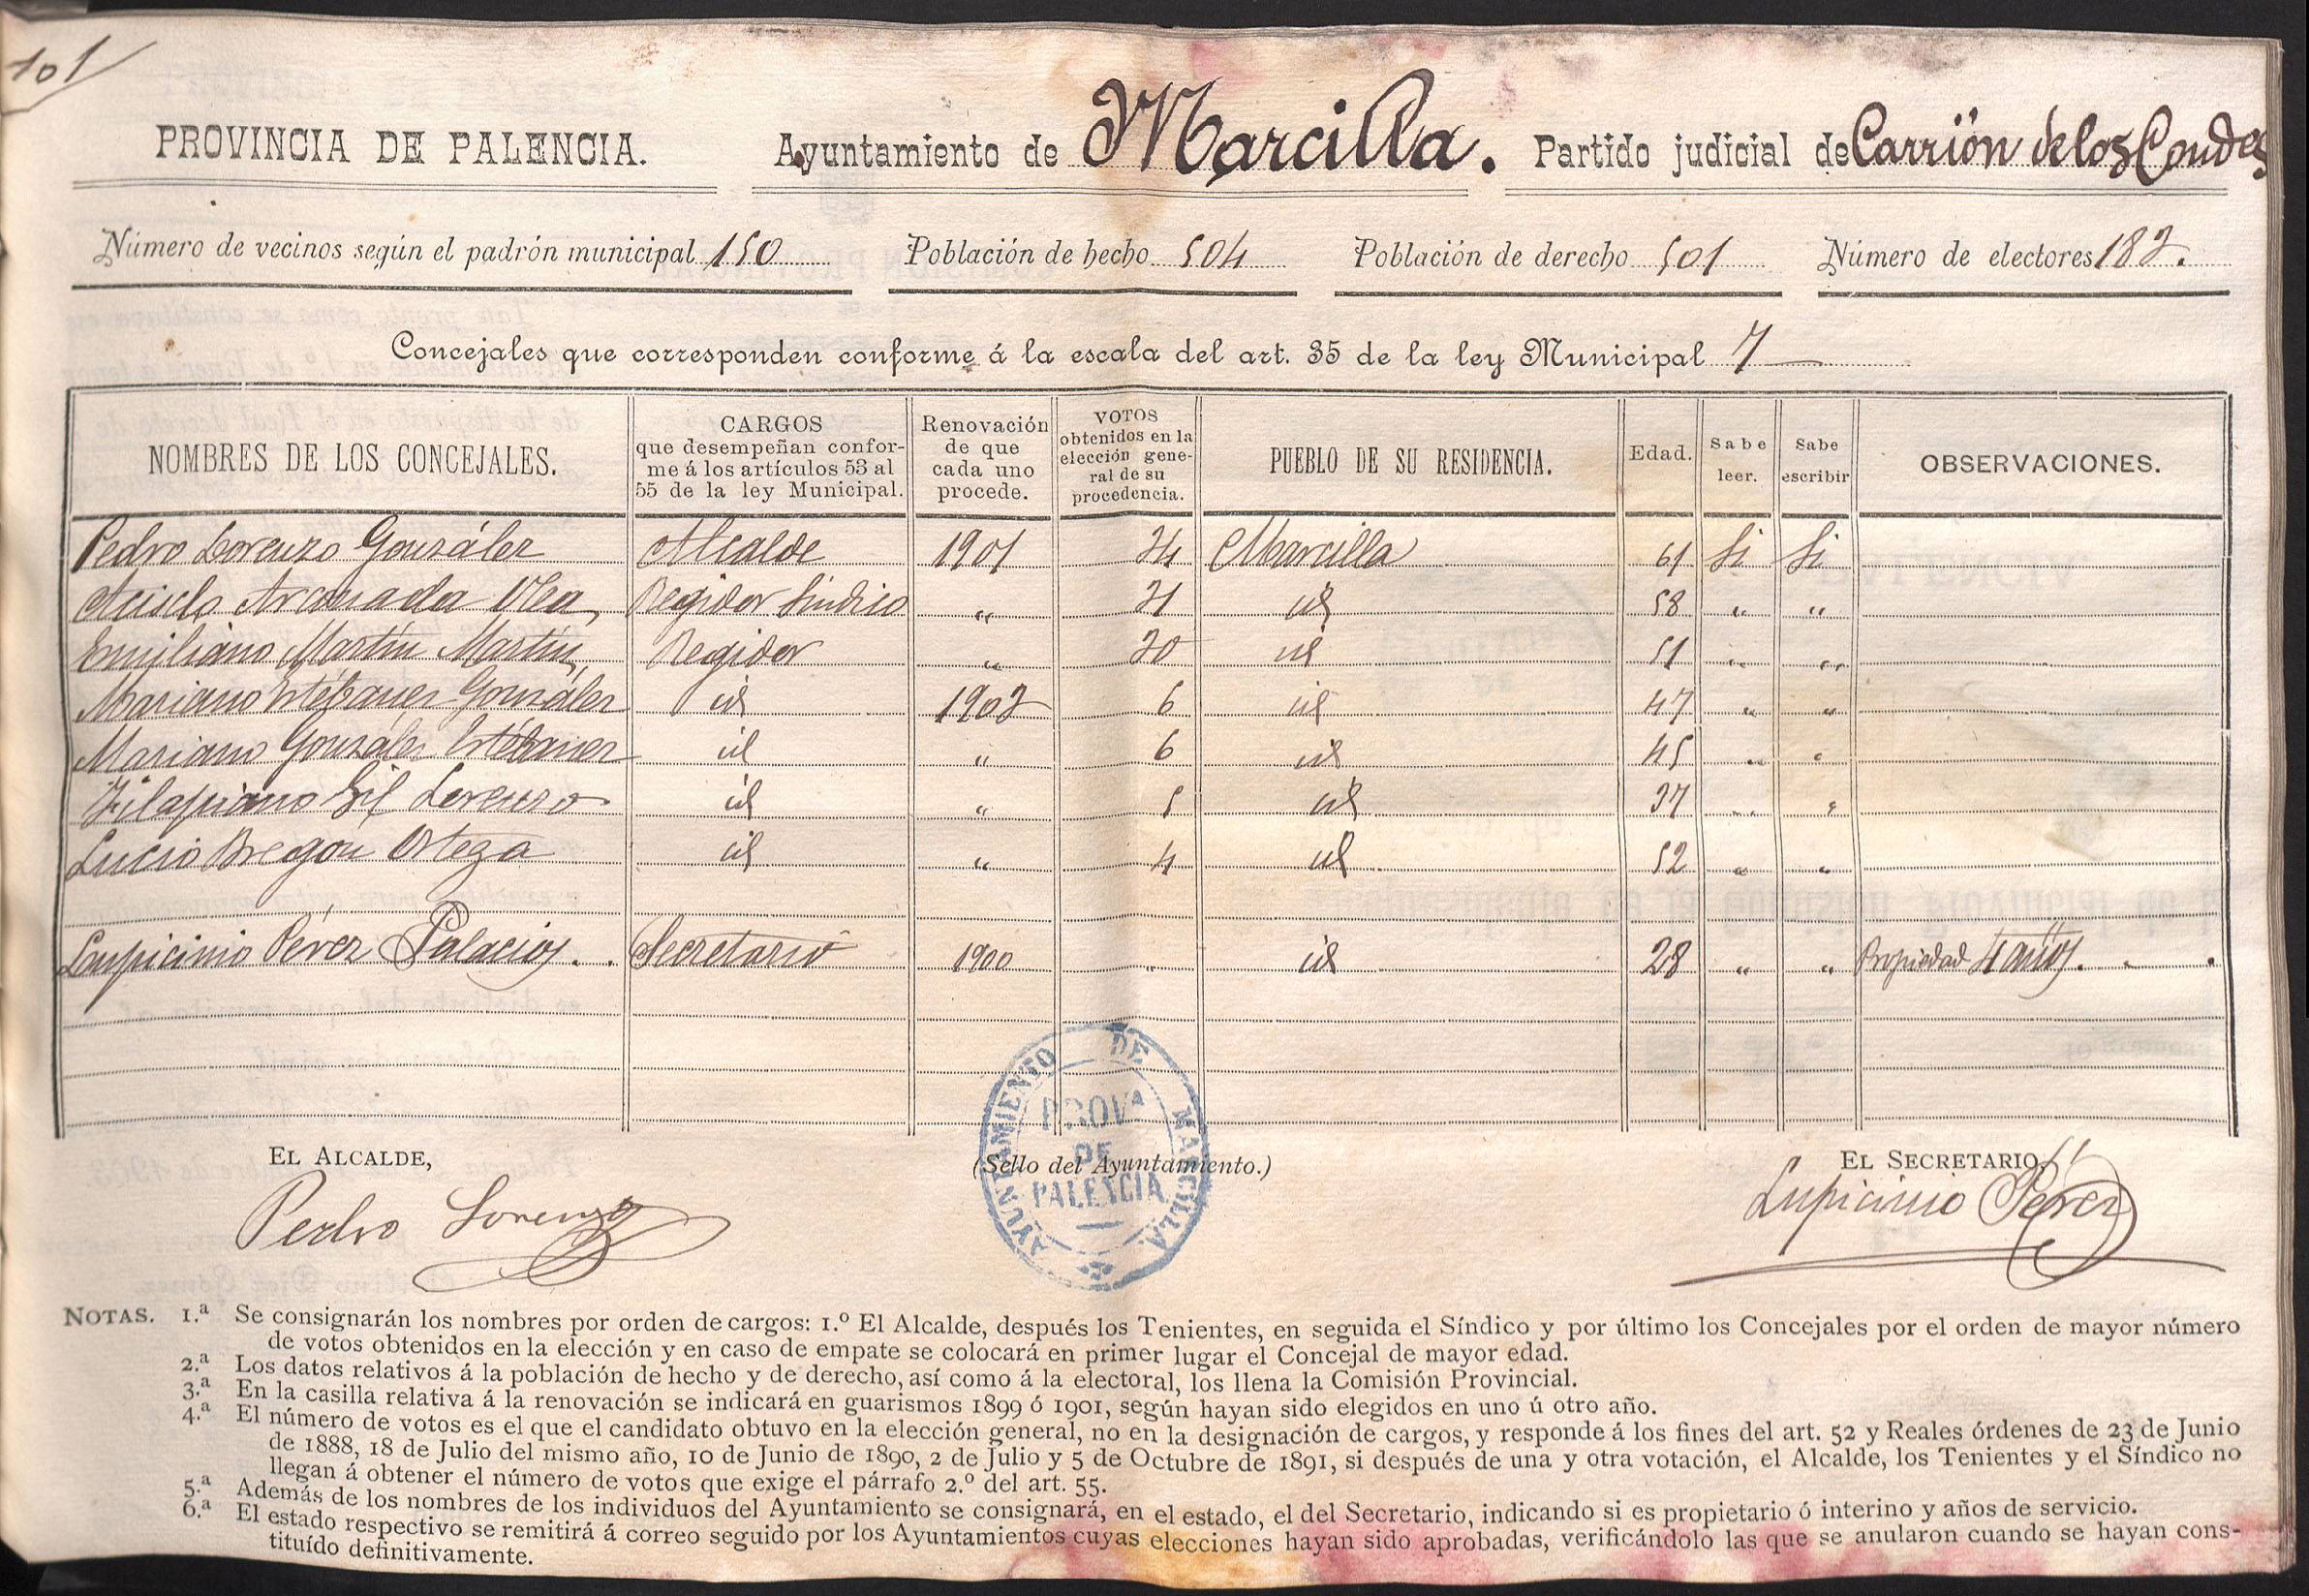 101
PROVINCIA DE PALENCIA. Ayuntamiento de Marcilla. Partido judicial de Carrión de los Condes
Número de vecinos según el padrón municipal 150 Población de hecho 504 Población de derecho 501 Número de electores 182.
Concejales que corresponden conforme á la escala del art. 35 de la ley Municipal 7
NOMBRES DE LOS CONCEJALES. CARGOS que desempeñan conforme á los artículos 53 al 55 de la ley Municipal. Renovación de que cada uno procede. VOTOS obtenidos en la elección general de su procedencia. PUEBLO DE SU RESIDENCIA. Edad. Sabe leer. Sabe escribir OBSERVACIONES.
Pedro Lorenzo González Alcalde 1901 24 Marcilla 61 Si Si
Acisclo Arconada Olea, Regidor Síndico " 21 id 58 " "
Emiliano Martín Martín, Regidor " 20 id 51 " "
Mariano Estébanez González id 1903 6 id 47 " "
Mariano González Estébanez id " 6 id 45 " "
Gil Lorenzo id " 5 id 37 " "
Lucio Bregón Ortega id " 4 id 52 " "
Lupicinio Pérez Palacios. Secretario 1900 " id 28 " " Propiedad 4 años.
EL ALCALDE,
(Sello del Ayuntamiento.)
EL SECRETARIO,
Pedro Lorenzo
AYUNTAMIENTO DE MARCILLA
PROVA
DE
PALENCIA
Lupicinio Pérez
NOTAS. 1.ª Se consignarán los nombres por orden de cargos: 1.º El Alcalde, después los Tenientes, en seguida el Síndico y por último los Concejales por el orden de mayor número
de votos obtenidos en la elección y en caso de empate se colocará en primer lugar el Concejal de mayor edad.
2.ª Los datos relativos á la población de hecho y de derecho, así como á la electoral, los llena la Comisión Provincial.
3.ª En la casilla relativa á la renovación se indicará en guarismos 1899 ó 1901, según hayan sido elegidos en uno ú otro año.
4.ª El número de votos es el que el candidato obtuvo en la elección general, no en la designación de cargos, y responde á los fines del art. 52 y Reales órdenes de 23 de Junio
de 1888, 18 de Julio del mismo año, 10 de Junio de 1890, 2 de Julio y 5 de Octubre de 1891, si después de una y otra votación, el Alcalde, los Tenientes y el Síndico no
llegan á obtener el número de votos que exige el párrafo 2.º del art. 55.
5.ª Además de los nombres de los individuos del Ayuntamiento se consignará, en el estado, el del Secretario, indicando si es propietario ó interino y años de servicio.
6.ª El estado respectivo se remitirá á correo seguido por los Ayuntamientos cuyas elecciones hayan sido aprobadas, verificándolo las que se anularon cuando se hayan cons-
tituído definitivamente.